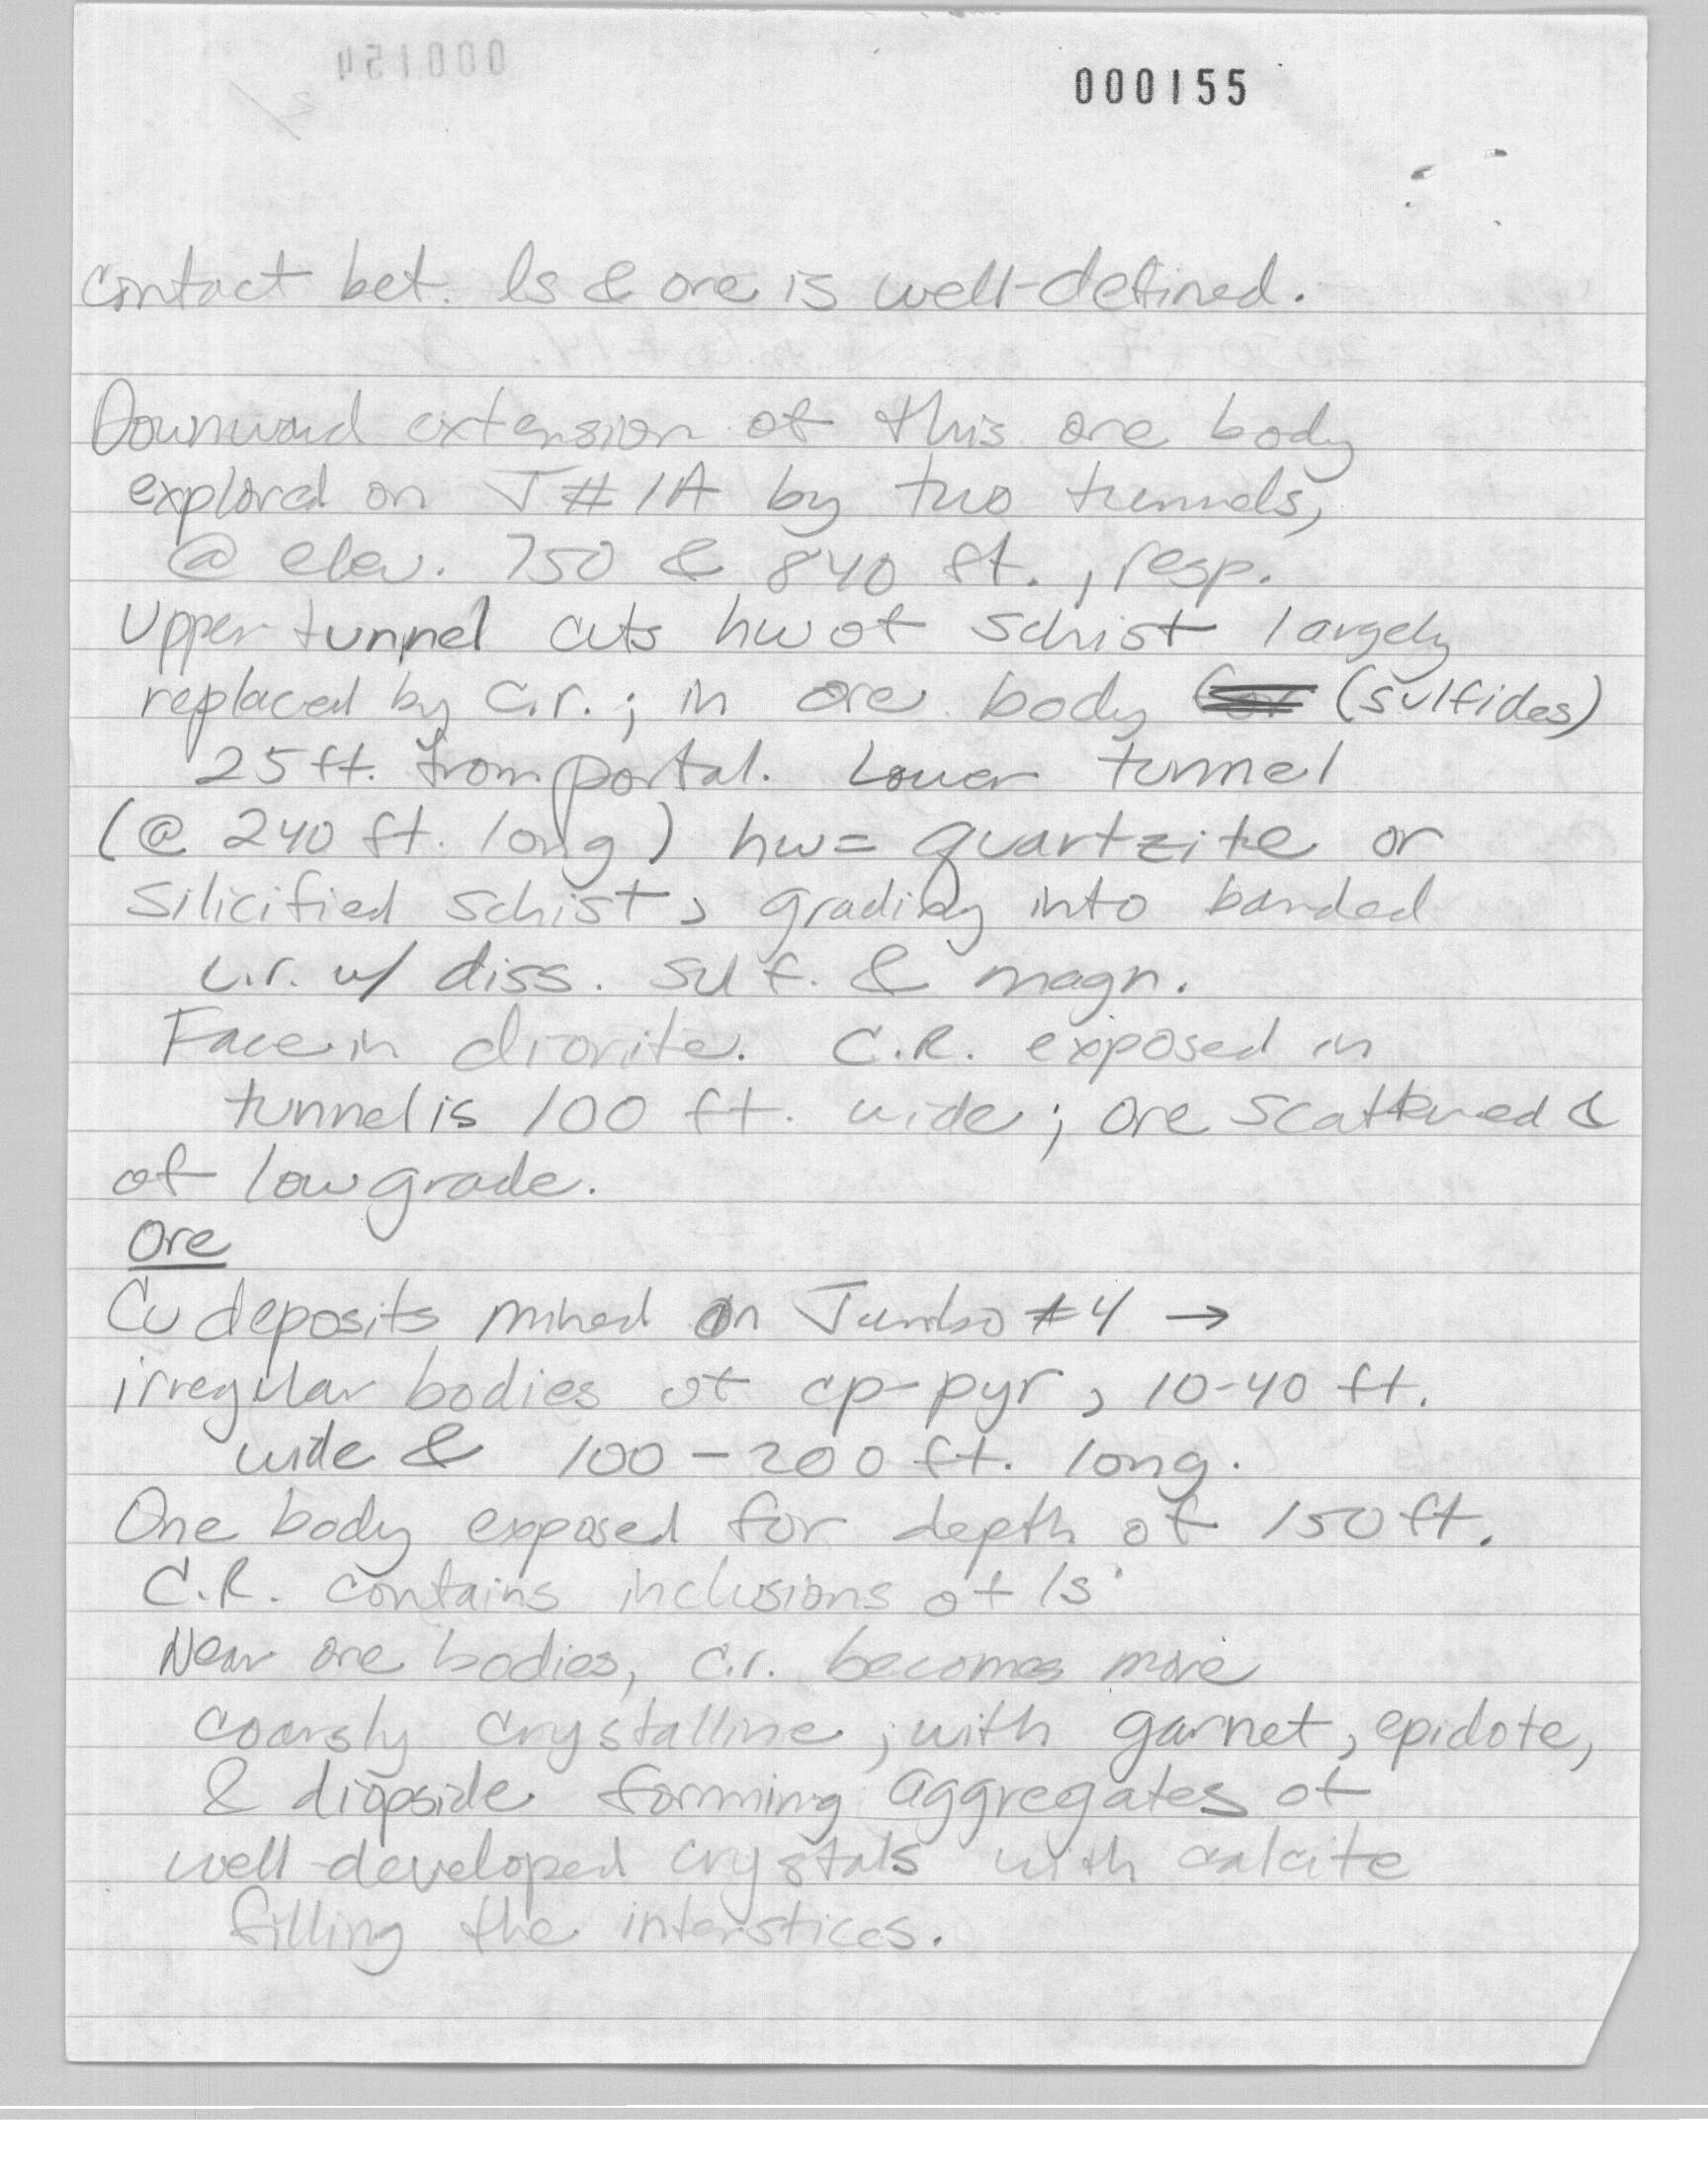 000155
contact bet. ls & ore is well-defined.
Downward extension of this ore body
explored on J#1A by two tunnels,
@ elev. 750 & 840 ft., resp.
Upper tunnel cuts hw of schist largely
replaced by c.r.; in ore body (sulfides)
25 ft. from portal. Lower tunnel
(@ 240 ft. long) hw= quartzite or
silicified schist, grading into banded
c.r. w/ diss. sulf. & magn.
Face in diorite. C.R. exposed in
tunnel is 100 ft. wide; ore scattered &
of low grade.
Ore
Cu deposits mined on Jumbo #4 →
irregular bodies of cp-pyr, 10-40 ft.
wide & 100-200 ft. long.
One body exposed for depth of 150 ft.
C.R. contains inclusions of ls.
Near ore bodies, c.r. becomes more
coarsly crystalline, with garnet, epidote,
& diopside forming aggregates of
well-developed crystals with calcite
filling the interstices.